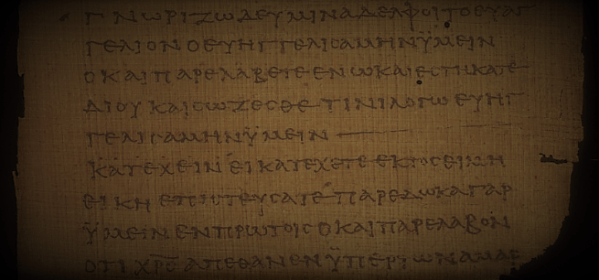 ΓΝΩΡΙΖΩΔΕΥΜΙΝΑΔΕΛΦΟΙΤΟΕΥΑΓ
ΓΕΛΙΟΝΟΕΥΗΓΓΕΛΙϹΑΜΗΝΫΜΕΙΝ
ΟΚΑΙΠΑΡΕΛΑΒΕΤΕΕΝΩΚΑΙΕϹΤΗΚΑΤΕ
ΔΙΟΥΚΑΙϹΩΖΕϹΘΕΤΙΝΙΛΟΓΩΕΥΗΓ
ΓΕΛΙϹΑΜΗΝΫΜΕΙΝ
ΚΑΤΕΧΕΙΝΕΙΚΑΤΕΧΕΤΕΕΚΤΟϹΕΙΜΗ
ΕΙΚΗΕΠΙϹΤΕΥϹΑΤΕΠΑΡΕΔΩΚΑΓΑΡ
ΫΜΕΙΝΕΝΠΡΩΤΟΙϹΟΚΑΙΠΑΡΕΛΑΒΟΝ
ΟΤΙΧΡϹΑΠΕΘΑΝΕΝΫΠΕΡΤΩΝΑΜΑΡ